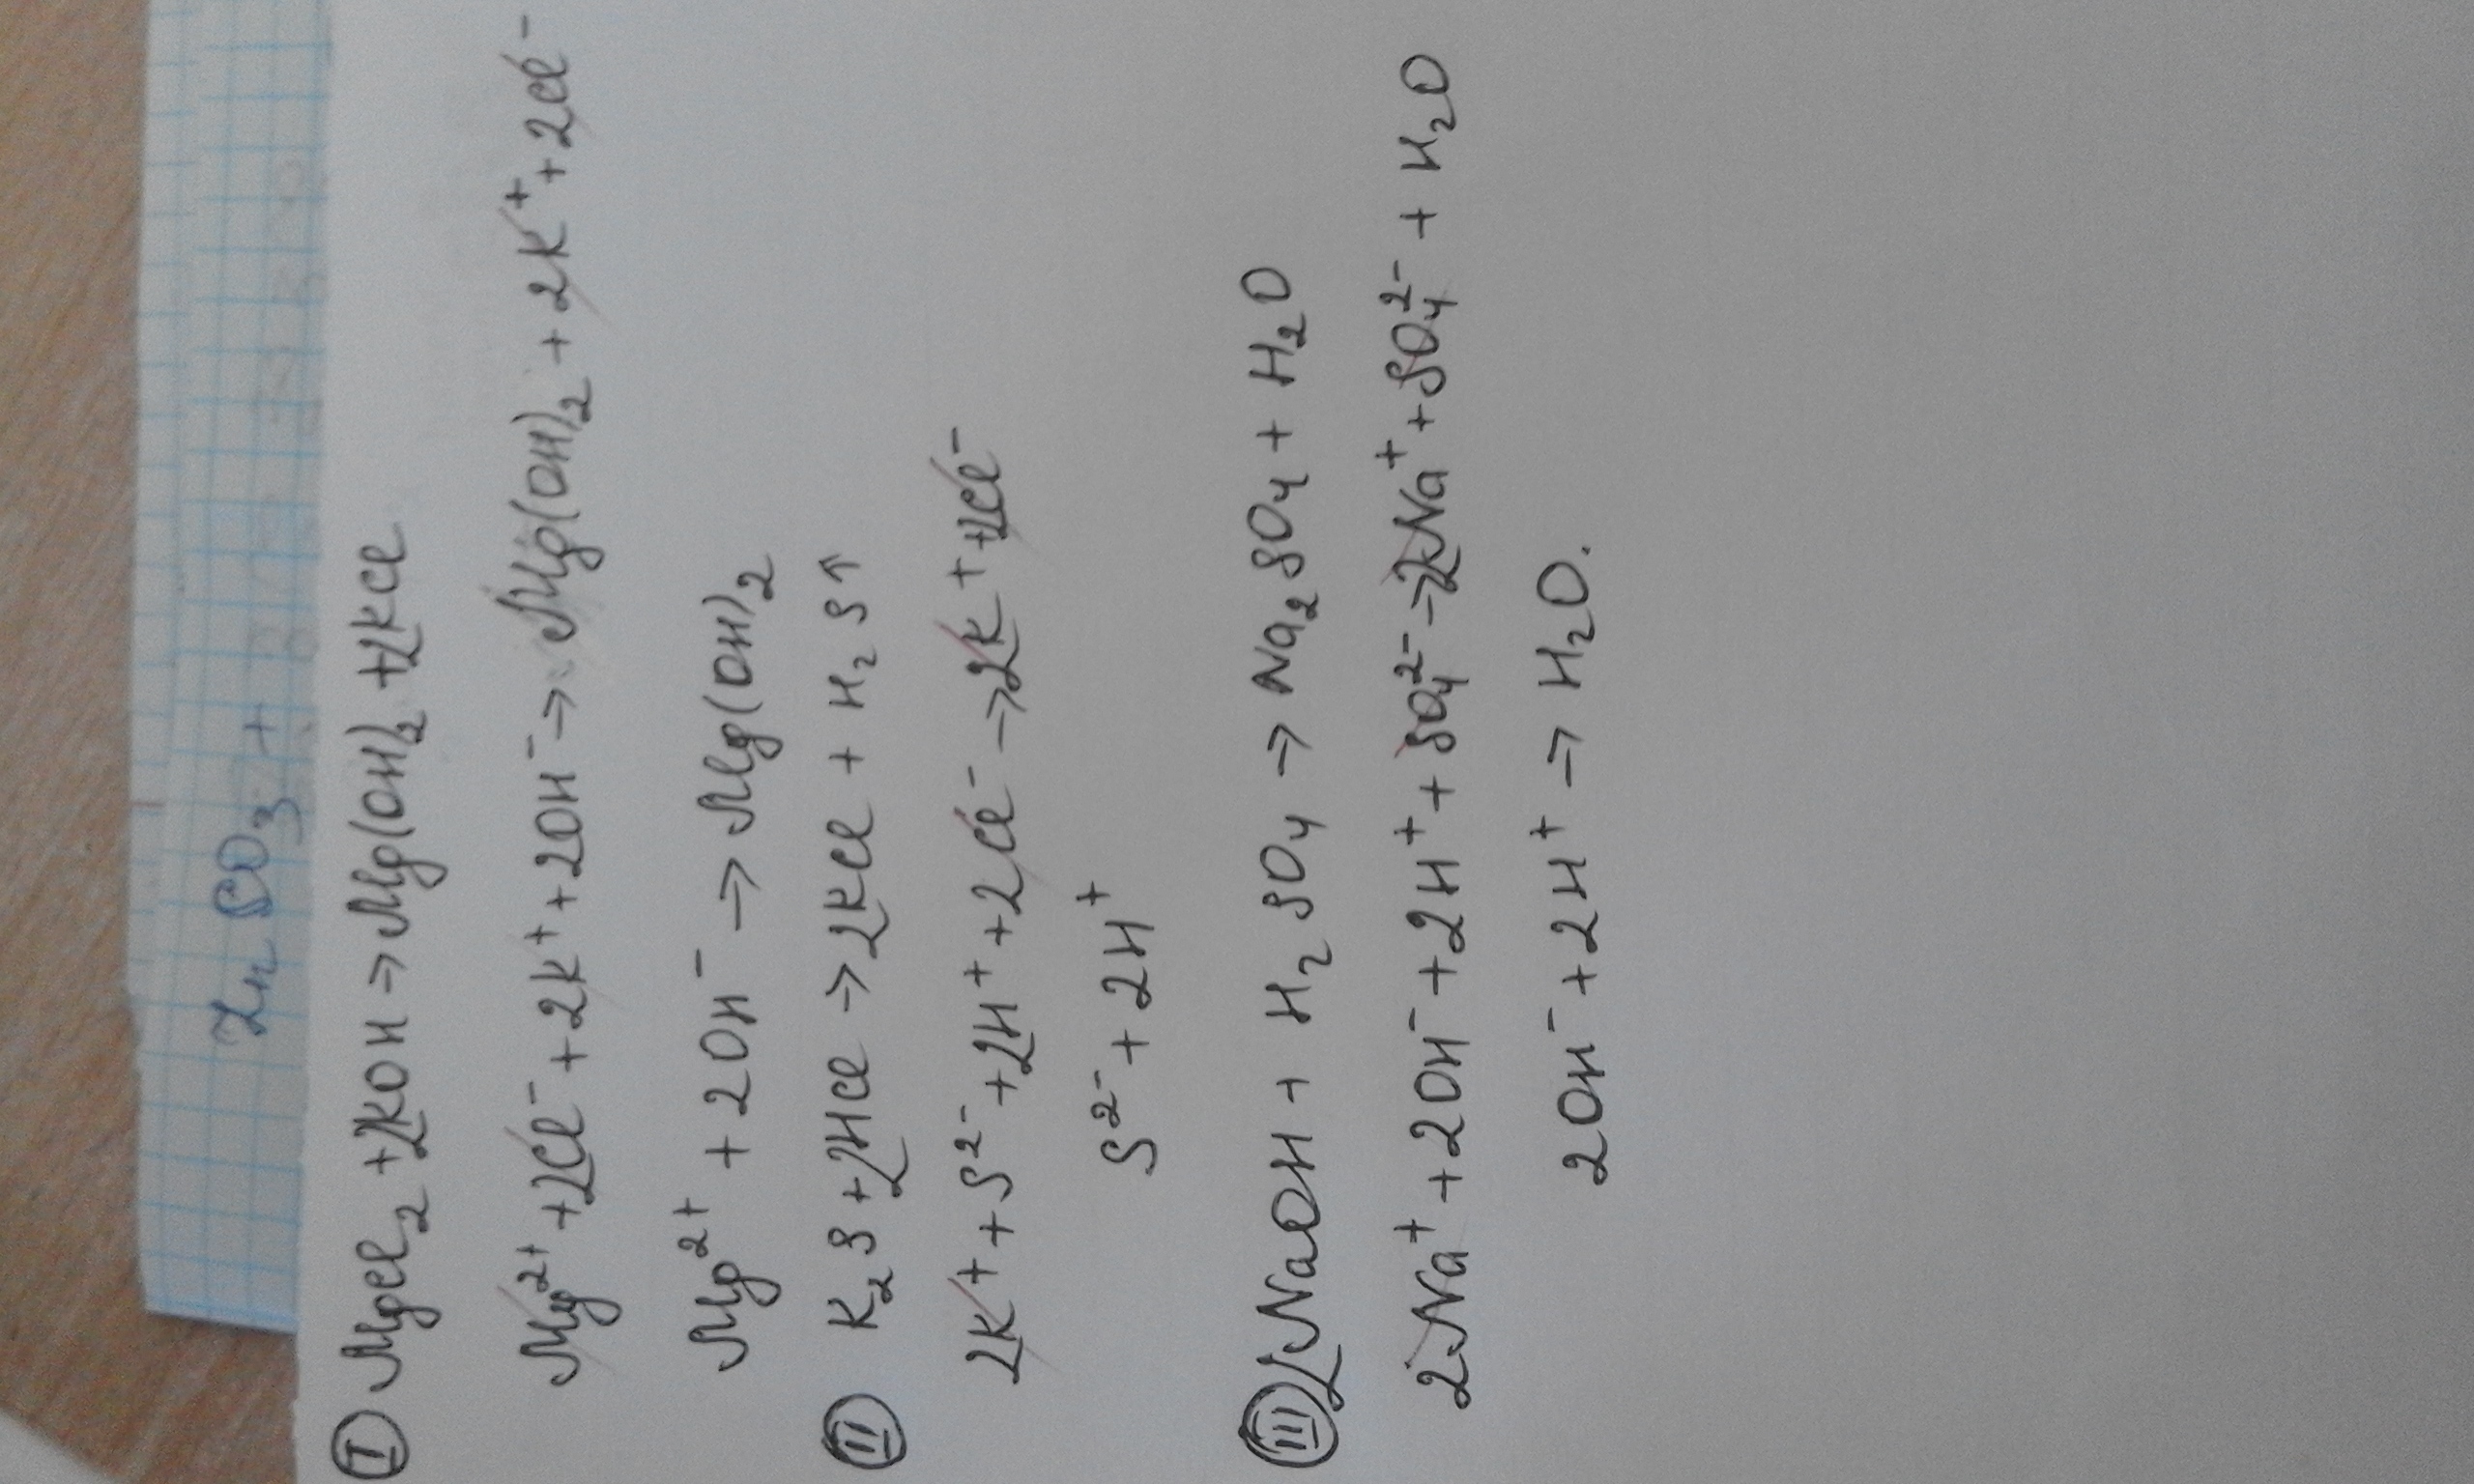 Zn SO₃ +
Ⅰ MgCl₂ + 2KOH → Mg(OH)₂ + 2KCl
Mg²⁺ + 2Cl⁻ + 2K⁺ + 2OH⁻ → Mg(OH)₂ + 2K⁺ + 2Cl⁻
Mg²⁺ + 2OH⁻ → Mg(OH)₂
Ⅱ K₂S + 2HCl → 2KCl + H₂S↑
2K⁺ + S²⁻ + 2H⁺ + 2Cl⁻ → 2K⁺ + 2Cl⁻
S²⁻ + 2H⁺
Ⅲ 2NaOH + H₂SO₄ → Na₂SO₄ + H₂O
2Na⁺ + 2OH⁻ + 2H⁺ + SO₄²⁻ → 2Na⁺ + SO₄²⁻ + H₂O
2OH⁻ + 2H⁺ → H₂O.